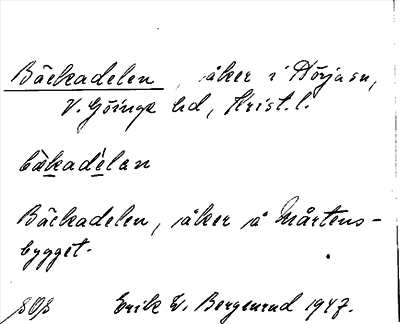 Bäckadelen, åker i Hörja sn,
V. Göinge hd, Krist. l.
bækadelan
Bäckadelen, åker å Mårtens-
bygget.
Erik W. Bergenrud 1947.